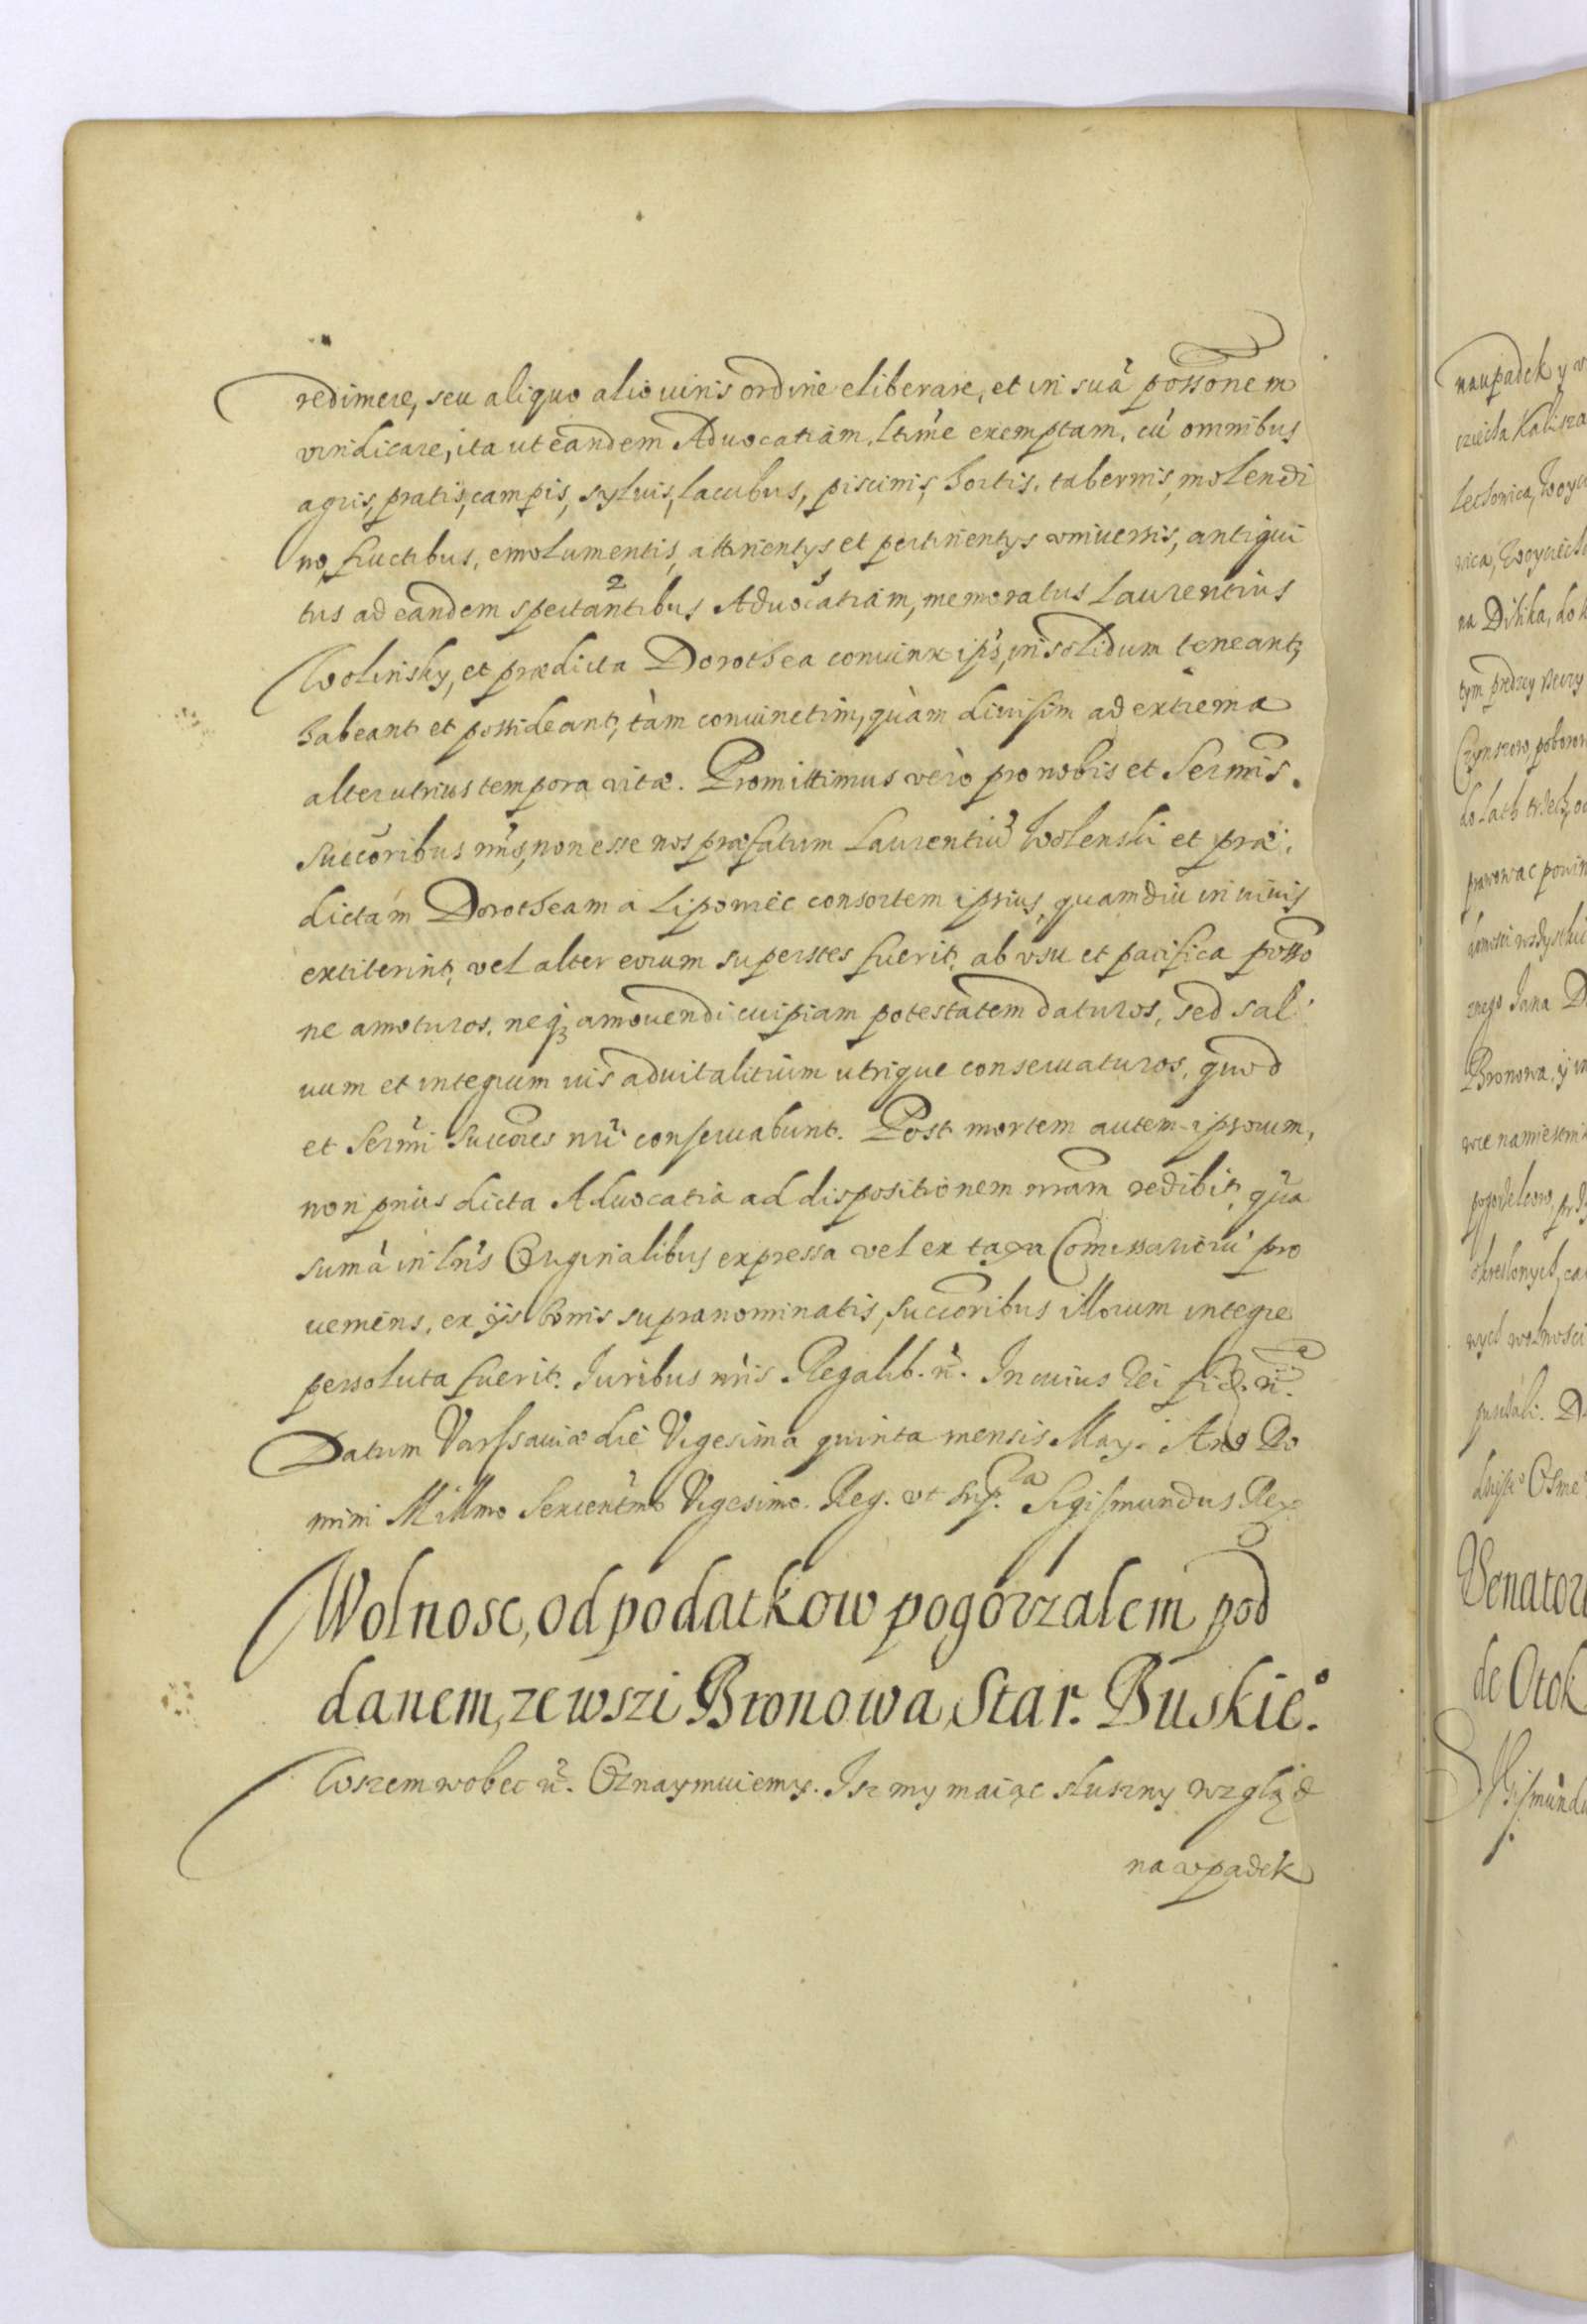 redimere, seu aliquo alio iuris ordine eliberare, et in suã possonem
vindicare, ita ut eandem Aduocatiam, ltime exemptam, cũ omnibus
agris, pratis, campis, syluis, lacubus, piscinis, hortis, tabernis, molendi
no, fructibus, emolumentis, attinentys et pertinentys vniuersis, antiqui
tus ad eandem spectantibus Aduocatiam, memoratus Laurentius
Wolinsky, et prædicta Dorothea coniunx ips, in solidum teneant,
habeant et possideant, tàm coniunctim, quàm diuisim ad extrema
alterutrius tempora vitæ. Promittimus verò pro nobis et Sermis.
Succoribus nris, non esse nos præfatum Laurentiũ Wolenski et præ
dictam Dorotheam a Lipomec consortem ipsius, quamdiu in viuis
extiterint, vel alter eorum superstes fuerit, ab vsu et pacifica posso
ne amoturos, neq amouendi cuipiam potestatem daturos, sed sal
uum et integrum ius aduitalitium utrique conseruaturos, quod
et Sermi Succores nri conseruabunt. Post mortem autem ipsorum,
non prius dicta Aduocatia ad dispositionem nram redibit, qua
sumã in lris Originalibus expressa vel ex taxa Comissariorũ pro
ueniens, ex ijs bonis supranominatis, succoribus illorum integre
persoluta fuerit. Iuribus nris Regalib. ñ. In cuius rei fid. ñ.
Datum Varssauiæ die Vigesima quinta mensis Mayi Ano Do
mini Millmo Sexcentmo Vigesimo. Reg. vt sup. Sigismundus Rex
Wolnosc, od podatkow pogorzalem pod
danem, ze wszi Bronowa Star. Buskieo.
Wszem wobec ñ. Oznaymuiemy. Isz my maiąc sluszny wzgląd
na vpadek
naupadek y
Lechowica, Woyc
na Dzika, do
tym predzey
do lath trzech, od
prawowac powin
znego Jana D
Bronowa, y
wie namiestnik
okreslonych, za
wych wolnosci
Senator
de Otok
Sigismundu